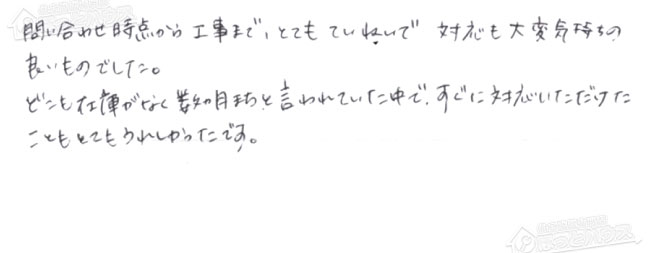 問い合わせ時点から工事まで、とてもていねいで 対応も大変気持ちの
良いものでした。
どこも在庫がなく数ヶ月まちと言われていた中で、すぐに対応いただけた
こともとてもうれしかったです。